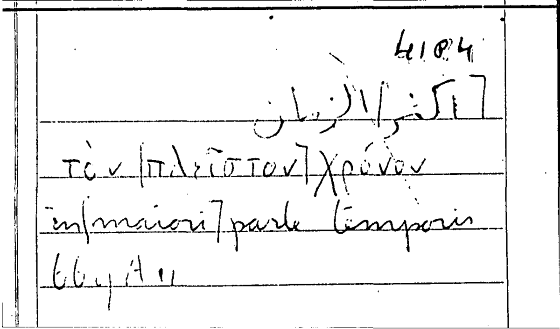 [اكثر] الزمان
τὸν [πλεῖστον] χρόνον
in [maiori] parte temporis